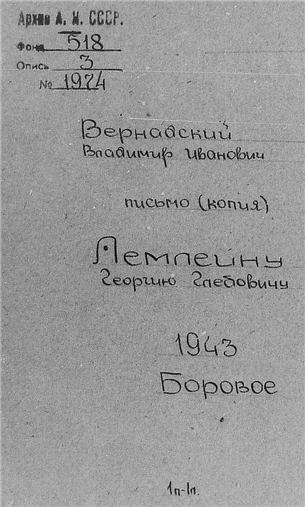 Архив А. Н. СССР.
Фонд 518
Опись 3
№ 1974
Вернадский
Владимир Иванович
письмо (копия)
Лемлейну
Георгию Глебовичу
1943
Боровое
1п-1л.